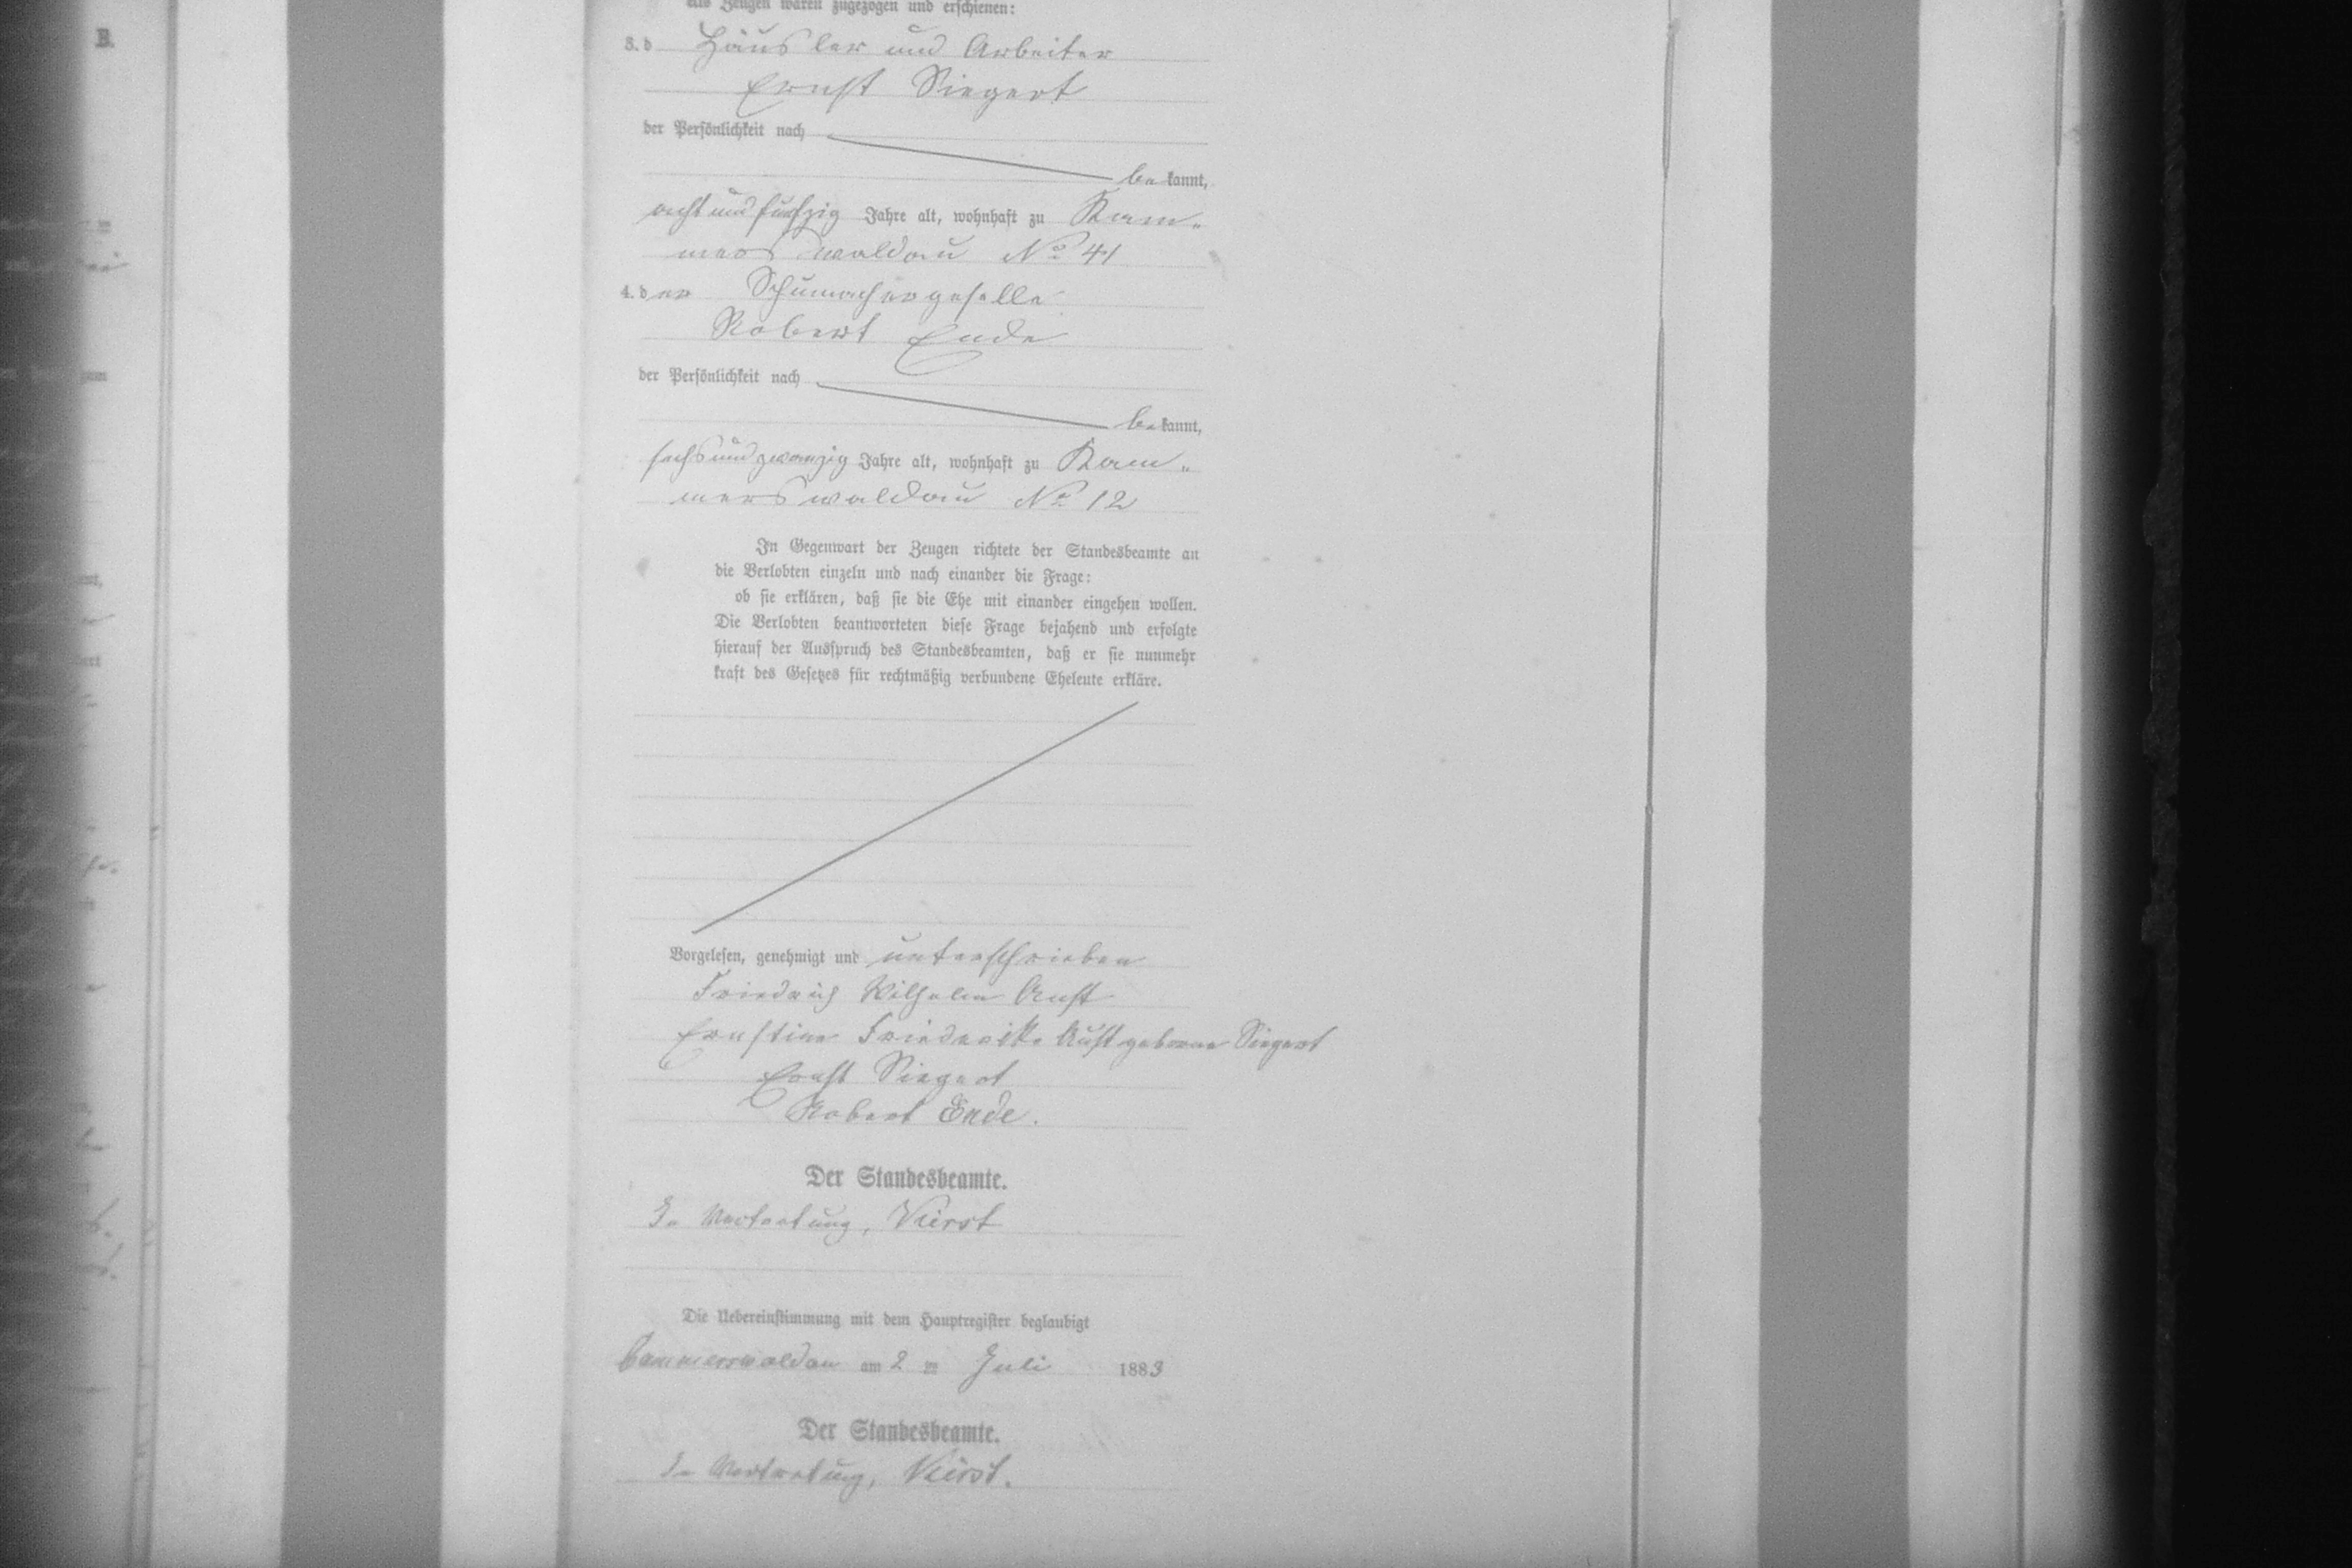 Als Zeugen waren zugezogen und erschienen:
3. d Häusler und Arbeiter
Ernst Siegert
der Persönlichkeit nach
be kannt,
acht und fünfzig Jahre alt, wohnhaft zu Kam-
merswaldau No 41
4. d er Schumachergeselle
Robert Ende
der Persönlichkeit nach
be kannt,
sechsundzwanzig Jahre alt, wohnhaft zu Kam-
merswaldau No 12
In Gegenwart der Zeugen richtete der Standesbeamte an
die Verlobten einzeln und nach einander die Frage:
ob sie erklären, daß sie die Ehe mit einander eingehen wollen.
Die Verlobten beantworteten diese Frage bejahend und erfolgte
hierauf der Ausspruch des Standesbeamten, daß er sie nunmehr
kraft des Gesetzes für rechtmäßig verbundene Eheleute erkläre.
Vorgelesen, genehmigt und unterschrieben
Friedrich Wilhelm Aust
Ernstine Friedericke Aust geborne Siegert
Ernst Siegert
Robert Ende.
Der Standesbeamte.
In Vertretung,
Die Uebereinstimmung mit dem Hauptregister beglaubigt
Cammerswaldau am 2 ten Juli 1883
Der Standesbeamte.
In Vertretung,